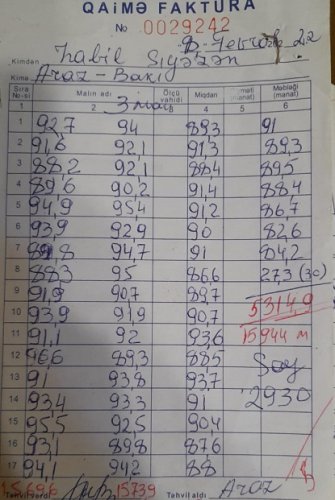 QAİMƏ FAKTURA
No 0029242
Kimdən Habil Siyəzən
Kimə Araz-Bakı
Sıra No-si Malın adı Ölçü vahidi Miqdarı Qiyməti (manat) Məbləği (manat)
1 2 3 4 5 6
1 92,7 94 89,3 91
2 91,6 92,1 91,3 89,3
3 88,2 92,1 88,4 89,5
4 89,6 90,2 91,4 88,4
5 94,9 95,4 91,2 86,7
6 93,9 92,9 90 82,6
7 89,8 94,7 91 84,2
8 88,3 95 86,6 27,3 (30)
9 91,9 90,7 89,7
5314,9
10 93,9 91,9 90,7
15944 m
11 91,1 92 93,6
12 96,6 89,3 88,5 Say
13 91 93,8 93,7
2930
14 93,4 93,3 91
15 95,5 92,5 90,4
16 93,1 89,8 87,6
17 94,1 94,2 88
Təhvil verdi 15739 Təhvil aldı Araz